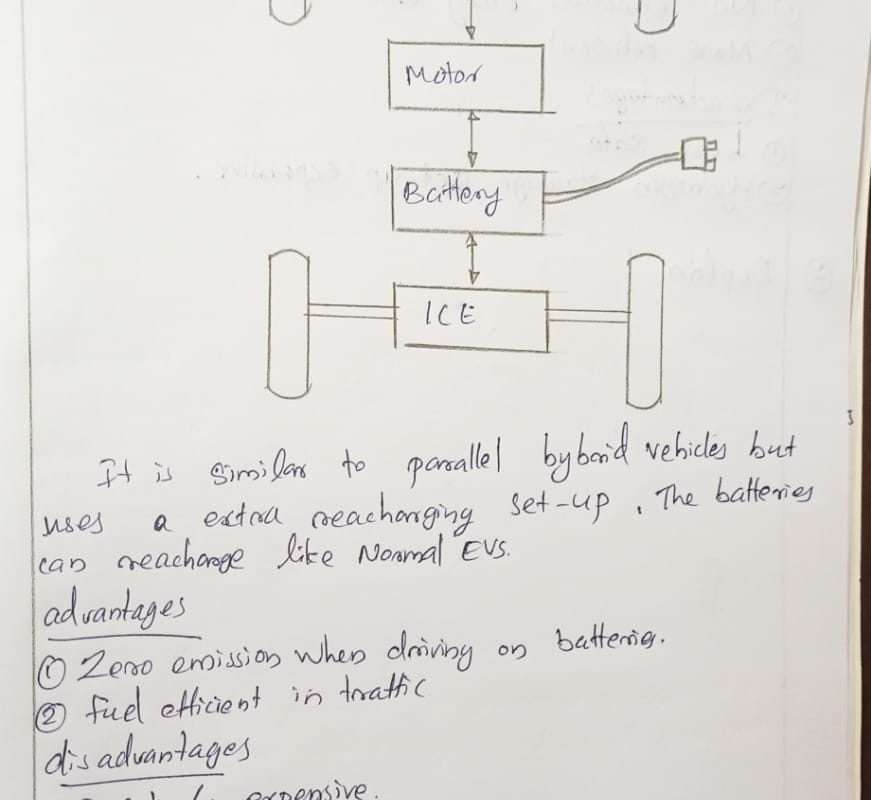 Motor
Battery
ICE
It is similar to parallel hybrid vehicles but
uses a extra reacharging set-up. The batteries
can reacharge like Normal EVs.
advantages
① Zero emission when driving on batteries.
② fuel efficient in traffic
disadvantages
expensive.